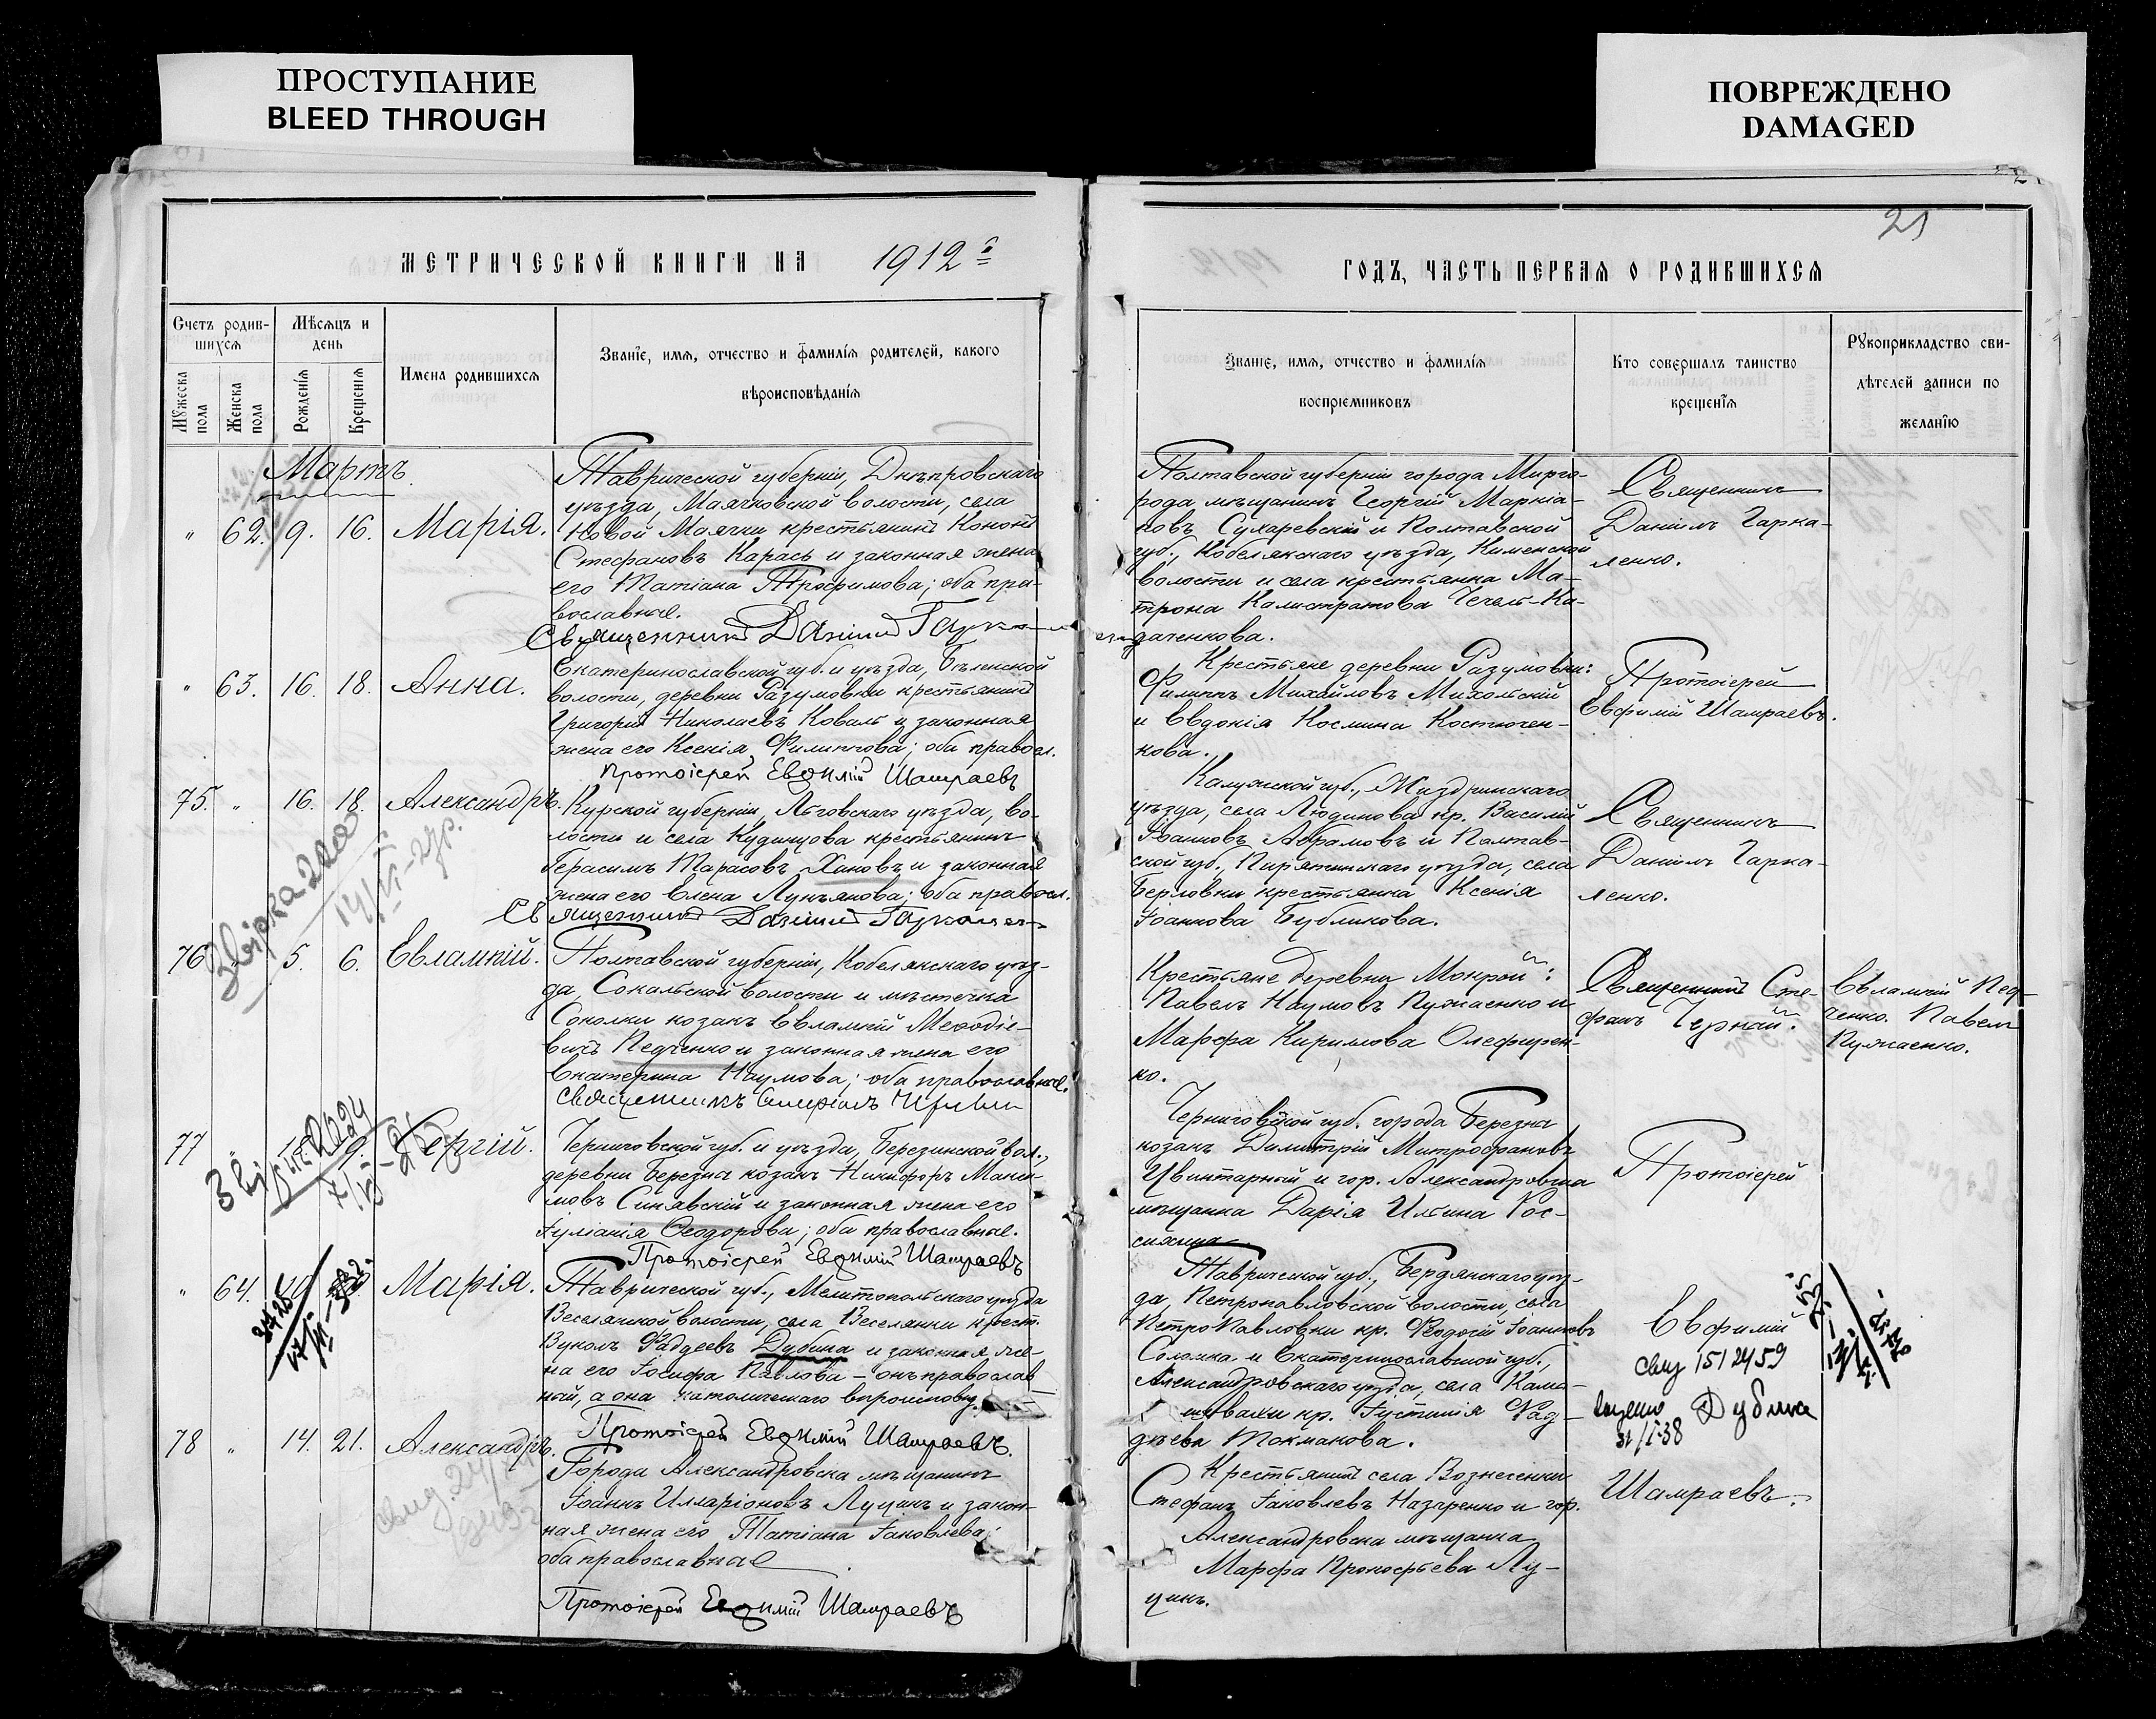 ПРОСТУПАНИЕ
BLEED THROUGH
ПОВРЕЖДЕНО
DAMAGED
21
МЕТРИЧЕСКОЙ КНИГИ НА 1912 г
ГОДЪ, ЧАСТЬ ПЕРВАЯ О РОДИВШИХСЯ
Счетъ родив-
шихся
Мужеска
пола
Женска
пола
Мѣсяцъ и
день
Рожденія
Крещенія
Имена родившихся
Званіе, имя, отчество и фамилія родителей, какого
вѣроисповѣданія
Званіе, имя, отчество и фамилія
воспріемниковъ
Кто совершалъ таинство
крещенія
Рукоприкладство сви-
дѣтелей записи по
желанію
Мартъ.
" 62. 9. 16. Марія.
Таврической губерніи, Днѣпровскаго
уѣзда, Маячковской волости, села
Новой Маячки крестьянинъ Кононъ
Стефановъ Карась и законная жена
его Татіана Трофимова; оба пра-
вославные.
Священникъ Даніилъ Гарка
Полтавской губерніи города Мирго-
рода мѣщанинъ Георгій Маркіа-
новъ Сухаревскій и Полтавской
губ., Кобелякскаго уѣзда,
волости и села крестьянка Ма-
трона Калистратова
Священникъ
Даніилъ Гарка-
ленко.
" 63. 16. 18. Анна.
Екатеринославской губ. и уѣзда, Бѣленской
волости, деревни Разумовки крестьянинъ
Григорій Николаевъ Коваль и законная
жена его Ксенія Филиппова; оба правосл.
Протоіерей Евфимій Шамраевъ
Крестьяне деревни Разумовки:
Филиппъ Михайловъ Михольскій
и Евдокія Космина Костючен-
кова.
Протоіерей
Евфимій Шамраевъ.
75. " 16. 18. Александръ.
Курской губерніи, Льговскаго уѣзда, во-
лости и села Кудинцова крестьянинъ
Герасимъ Тарасовъ Хановъ и законная
жена его Елена Лукьянова; оба правосл.
Священникъ Даніилъ Гаркален
Калужской губ., Жиздринскаго
уѣзда, села Людинова кр. Василій
Іоанновъ Абрамовъ и Полтав-
ской губ., Пирятинскаго уѣзда, села
Берловки крестьянка Ксенія
Іоаннова Бубликова.
Священникъ
Даніилъ Гарка-
ленко.
76 " 5. 6. Евлампій.
Полтавской губерніи, Кобелякскаго уѣз-
да, Сокальской волости и мѣстечка
Соколки козакъ Евлампій Меѳодіе-
вичъ Педченко и законная жена его
Екатерина Наумова; оба православные.
Священникъ Стефанъ
Крестьяне деревни Мокрой:
Павелъ Наумовъ Пужаенко и
Марфа Кириллова Олефирен-
ко.
Священникъ Сте-
фанъ Чернай.
Евлампій Пед-
ченко. Павелъ
Пужаенко.
77 " 9. Сергій.
Черниговской губ. и уѣзда, Березинской вол.,
деревни Березна козакъ Никифоръ Макси-
мовъ Синявскій и законная жена его
Іуліанія Ѳеодорова; оба православные.
Протоіерей Евфимій Шамраевъ
Черниговской губ. города Березна
козакъ Димитрій Митрофановъ
Цвинтарный и гор. Александровска
мѣщанка Дарія Ильина Рос-
Протоіерей
" 64. Марія.
Таврической губ., Мелитопольскаго уѣзда
Веселянской волости, села Веселянки крест.
Вуколъ Фаддеевъ Дубина и законная же-
на его Іосифа Павлова – онъ православ
ный, а она католическаго вѣроисповѣд.
Протоіерей Евфимій Шамраевъ.
Таврической губ., Бердянскаго уѣз-
да, Петропавловской волости, села
ПетроПавловки кр. Феодосій Іоанновъ
Соломка и Екатеринославской губ.,
Александровскаго уѣзда, села Камы-
шевахи кр. Іустинія Фад-
дѣева Токманова.
Евфимій
1512459
Дубина
31/I-38
78 " 14. 21. Александръ.
Города Александровска мѣщанинъ
Іоаннъ Илларіоновъ Луцакъ и закон-
ная жена его Татіана Іаковлева;
оба православные
Протоіерей Евфимій Шамраевъ
Крестьянинъ села Вознесенки
Стефанъ Іаковлевъ Назаренко и гор.
Александровска мѣщанка
Марфа Прокофьева Лу-
Шамраевъ.